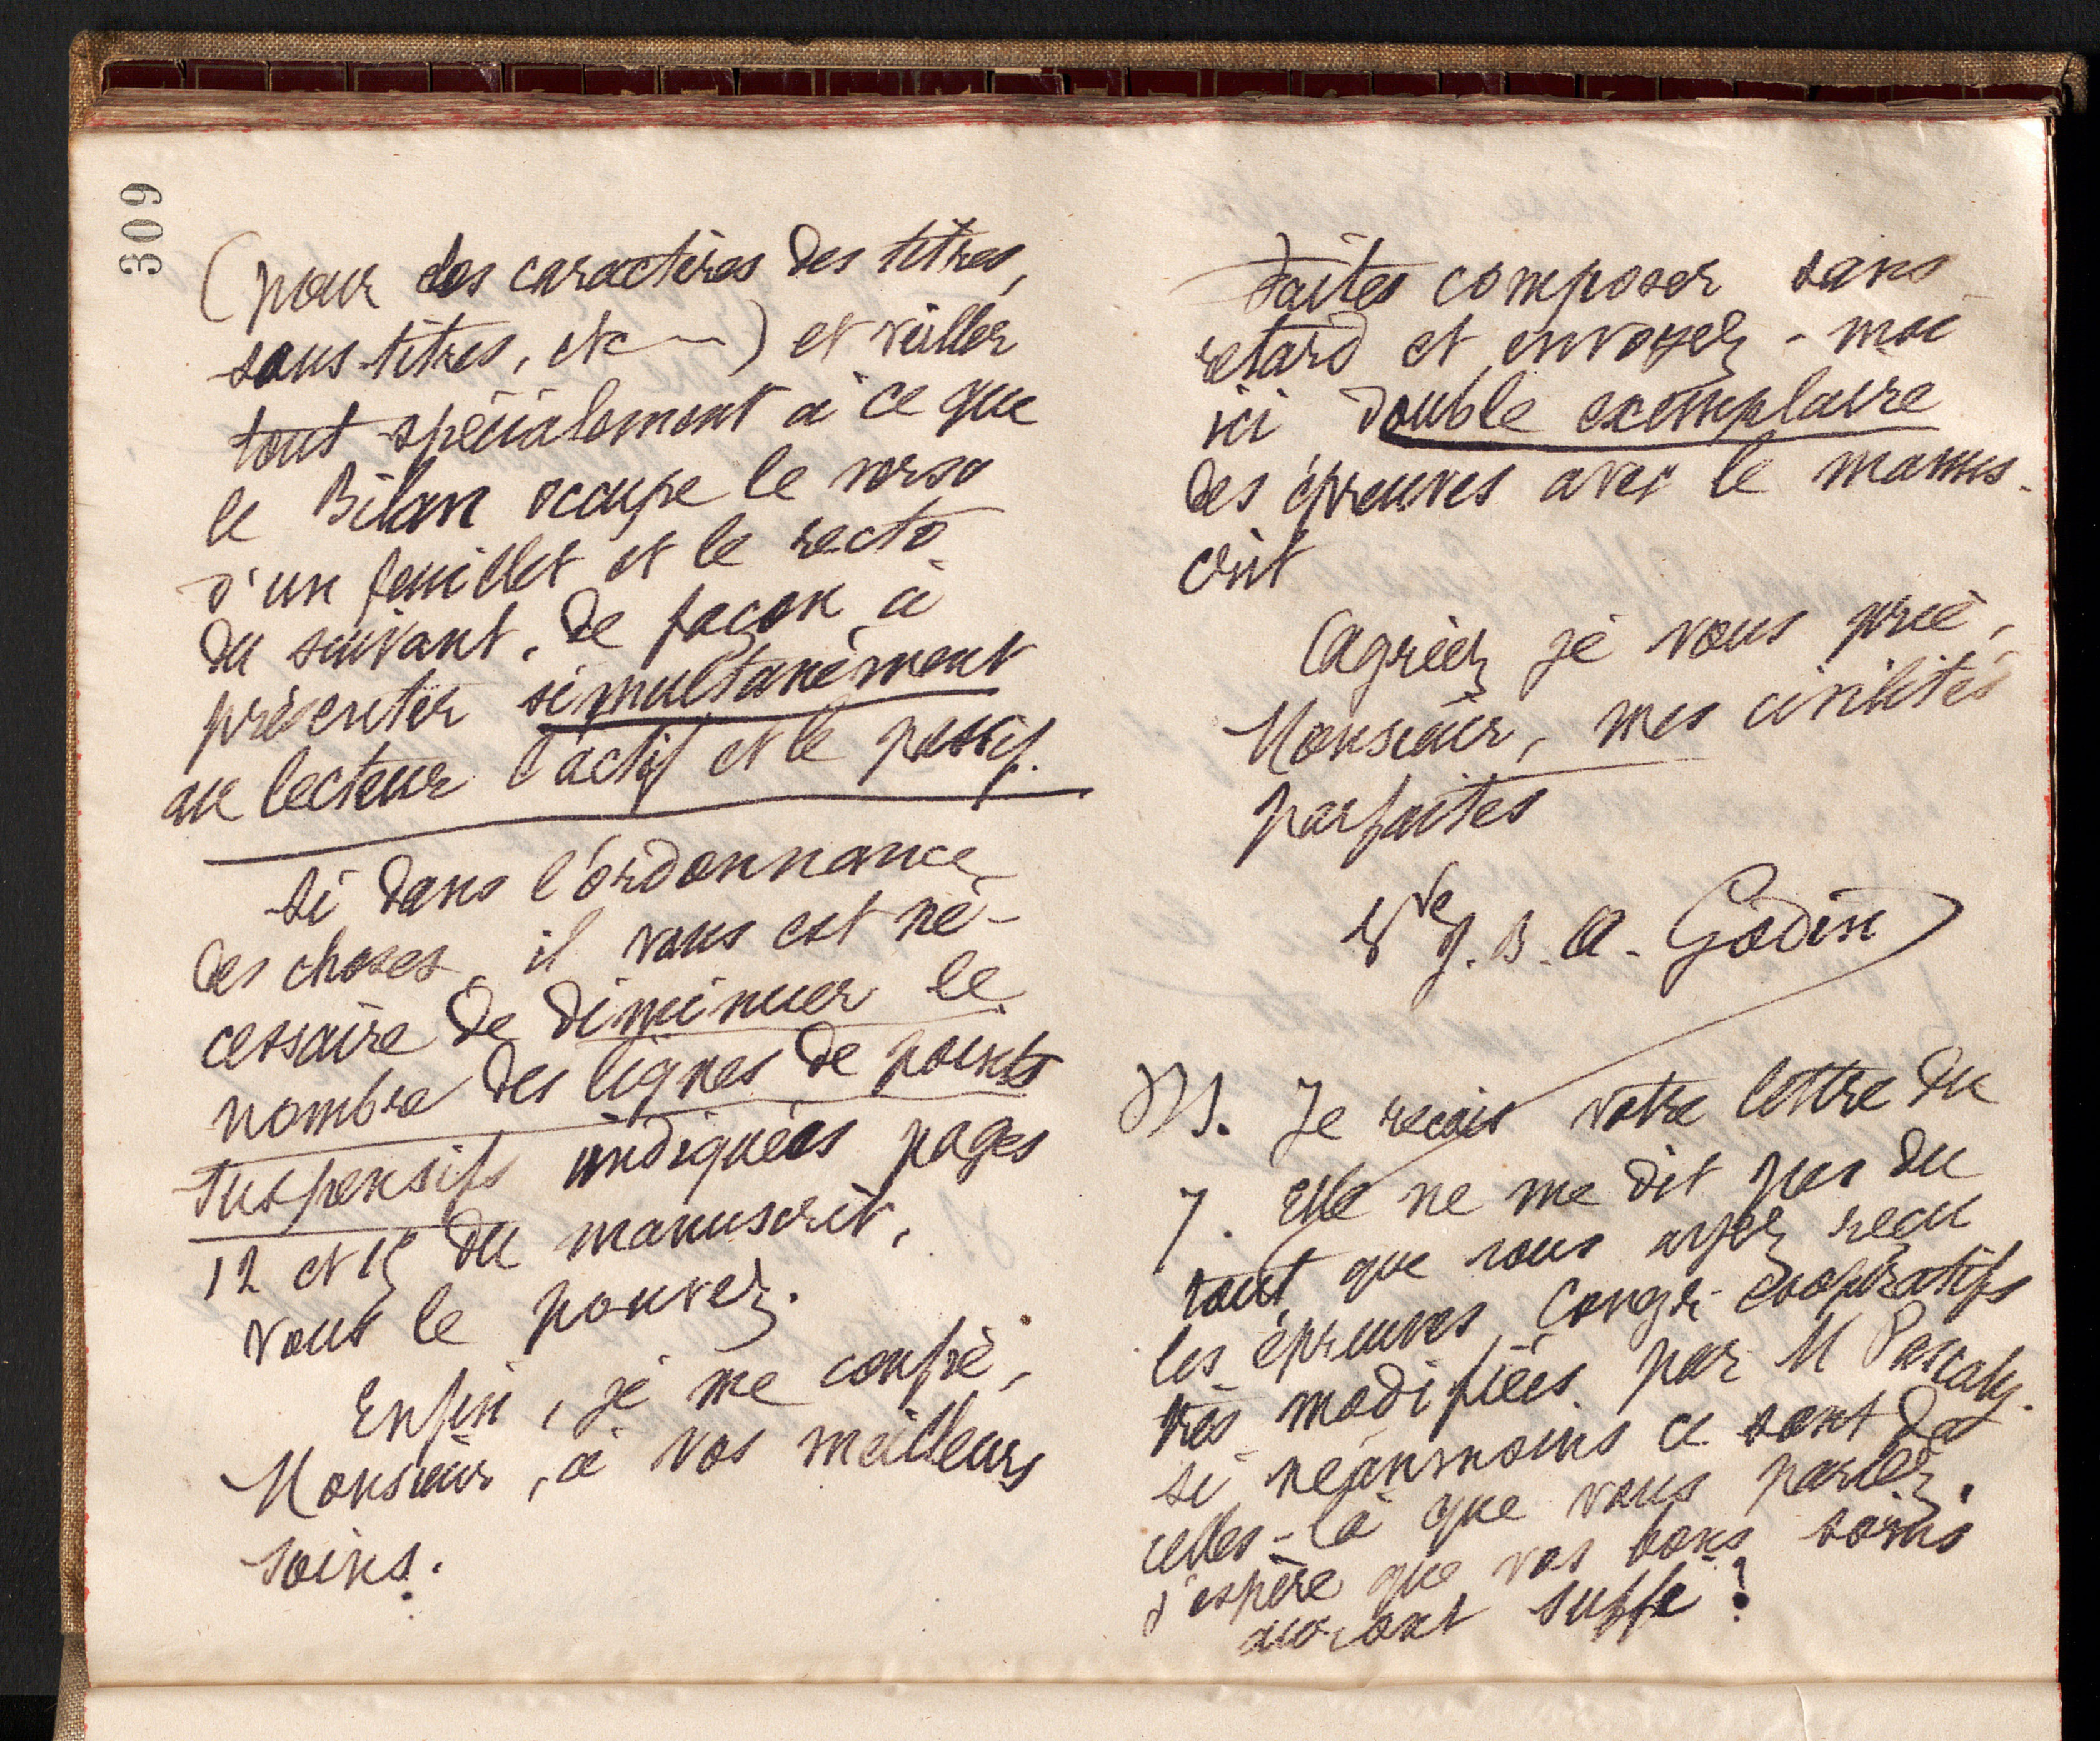 309
(pour des caractères des titres,
sous-titres, etc) et veiller
tout spécialement à ce que
le Bilan occupe le verso
d'un feuillet et le recto
du suivant, de façon à
présenter simultanément
au lecteur l'actif et le passif.
Si dans l'ordonnance
des choses, il vous est né-
cessaire de diminuer le
nombre des lignes de points
suspensifs indiquées pages
12 et 15 du manuscrit,
vous le pouvez.
Enfin, je me confie,
Monsieur, à vos meilleurs
soins.
Faites composer sans
retard et envoyez-moi
ici double exemplaire
des épreuves avec le manus-
crit
Agréez je vous prie,
Monsieur, mes civilités
parfaites
Vve J. B. A. Godin
PS. Je reçois votre lettre du
7. Elle ne me dit pas du
tout que vous ayez reçu
les épreuves Congr. coopératifs
très modifiées par M Pascaly.
Si néanmoins ce sont de
celles-là que vous parlez,
j'espère que vos bons soins
auront suffi!